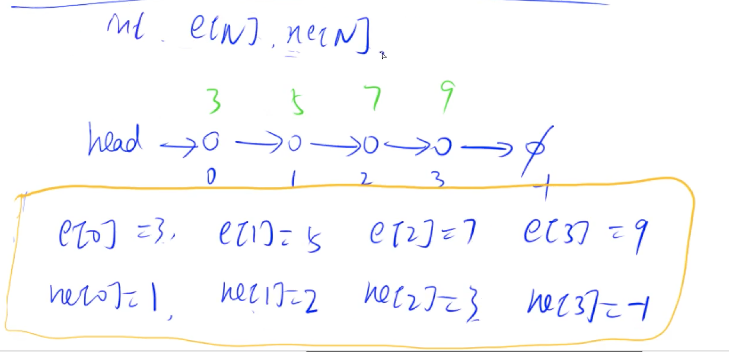 int e[N], ne[N].
3 5 7 9
head →o →o →o →o → ∅
0 1 2 3 -1
e[0]=3, e[1]=5 e[2]=7 e[3]=9
ne[0]=1, ne[1]=2 ne[2]=3 ne[3]=-1